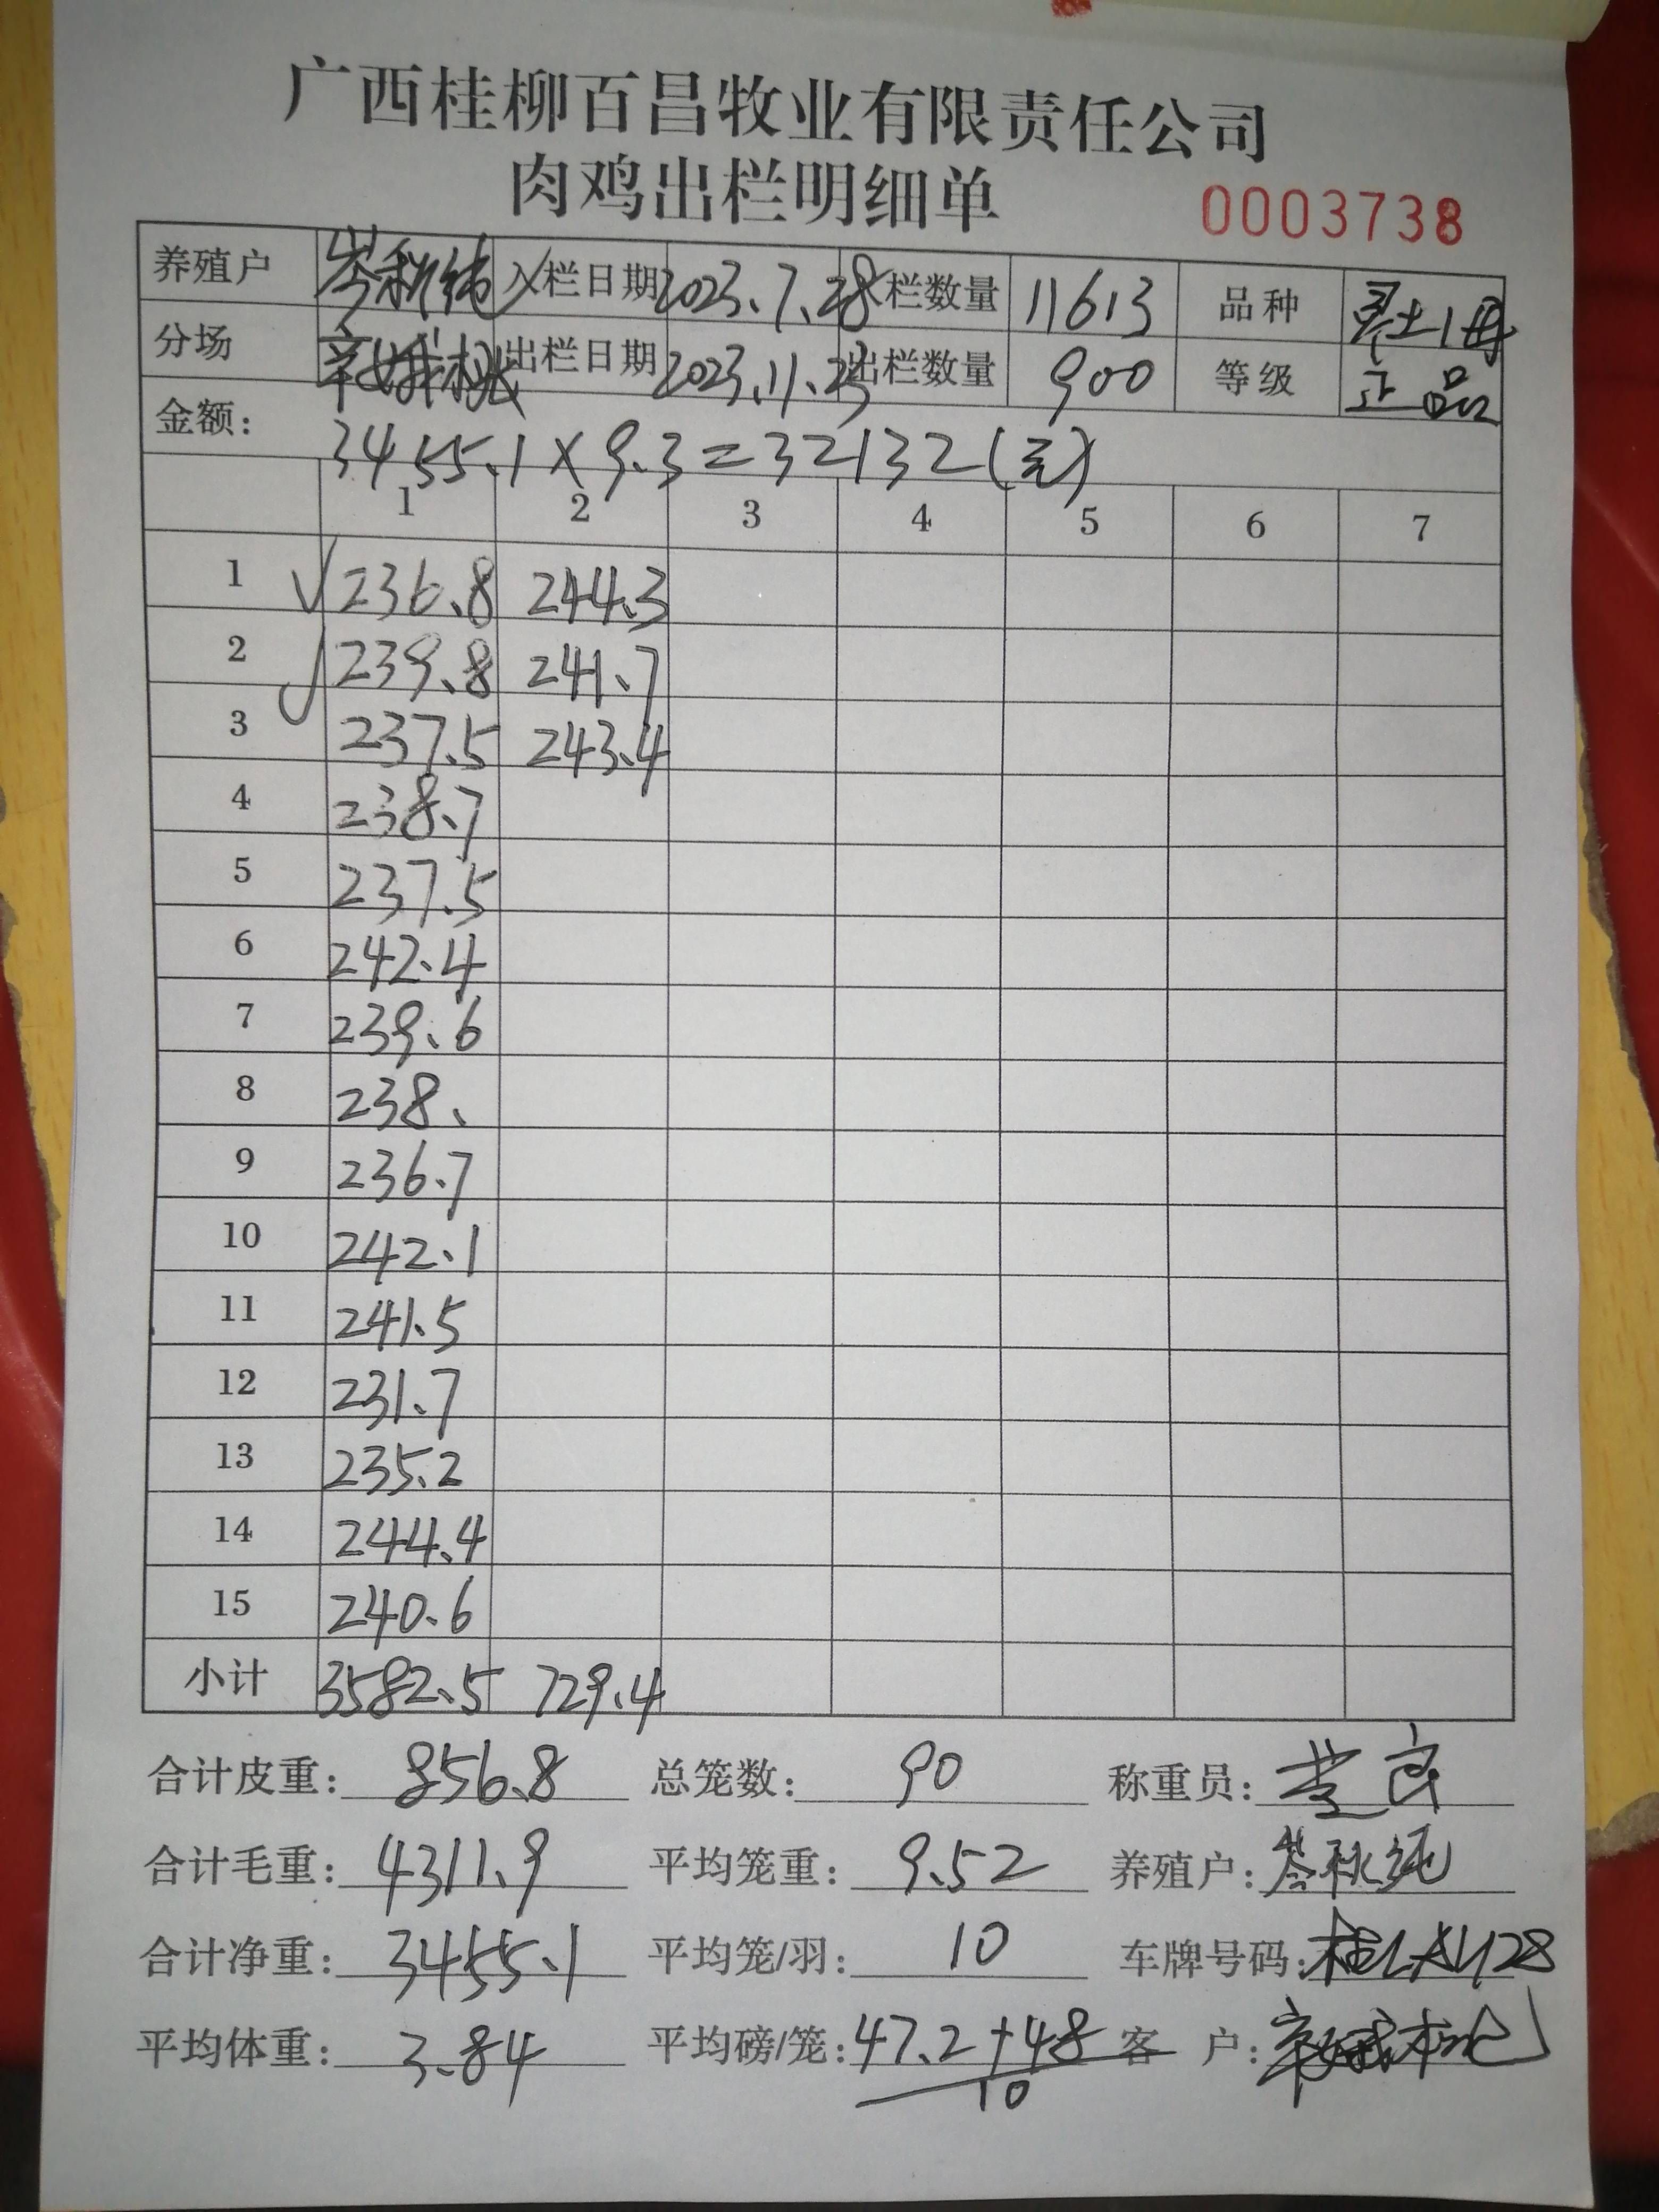 广西桂柳百昌牧业有限责任公司
肉鸡出栏明细单 0003738
养殖户 岑秋纯 入栏日期 2023.7.28 栏数量 11613 品种 土1母
分场 出栏日期 2023.11.23 出栏数量 900 等级 正品
金额: 3455.1×9.3=32132(元)
1 2 3 4 5 6 7
1 √ 236.8 244.3
2 √ 239.8 241.7
3 237.5 243.4
4 238.7
5 237.5
6 242.4
7 239.6
8 238.
9 236.7
10 242.1
11 241.5
12 231.7
13 235.2
14 244.4
15 240.6
小计 3582.5 729.4
合计皮重: 856.8 总笼数: 90 称重员:
合计毛重: 4311.9 平均笼重: 9.52 养殖户: 岑秋纯
合计净重: 3455.1 平均笼/羽: 10 车牌号码:
平均体重: 3.84 平均磅/笼: 47.2+48 客 户:
10